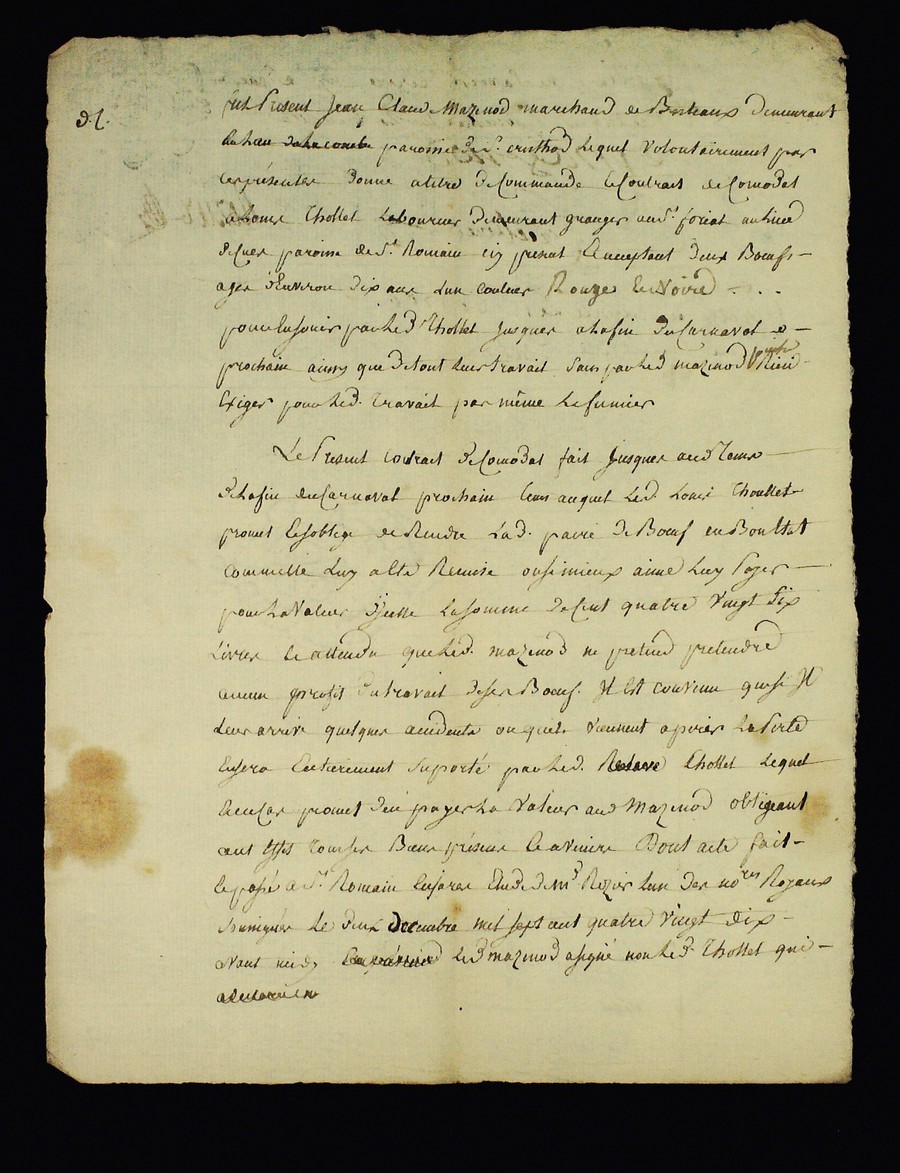 d. l.
fut Present Jean Claude Mazenod marchand de Bestiaux demeurant
paroisse de st. cristhod lequel volontairement par
ces présentes donne a titre de Commande et Contrait de Comodat
a Louis Thollet Laboureur demeurant granger au st. foriat au lieu
de paroisse de st. Romain icy present et acceptant deux Bœufs
ages d'Environ dix ans l'un couleur Rouge et Noire
pour En Jouir par led. Thollet Jusques a la fin du Carnaval
prochain ainsy que de tout leur travail sans par led. mazenod Rien
Exiger pour led. travail pas même le fumier
Le Present contrait de Comodat fait Jusques aud. Tems
de la fin du Carnaval prochain tems auquel led. Louis Thollet
promet et s'oblige de Rendre lad. paire de Bœuf en
comme elle luy a été Remise ou si mieux aime luy payer
pour la Valeur d'Jcelle la somme de Cent quatre Vingt six
Livres et attendu que led. mazenod ne pretend pretendre
aucun profit du travail de ses Bœuf. Jl Est convenu que si Jl
leur arrive quelques accidents ou quels viennent a perir La Perte
En sera Entierement suporté par led. Thollet Lequel
au cas promet d'en payer La Valeur aud. Mazenod obligeant
aux Effets tous ses Biens présens et a venirs Dont acte fait
et passé a st. Romain En Jarez Etude de Me Rozier l'un des nores Royaux
soussignés le deux decembre mil sept cent quatre Vingt dix
avant midy led. mazenod a signé non led. Thollet qui